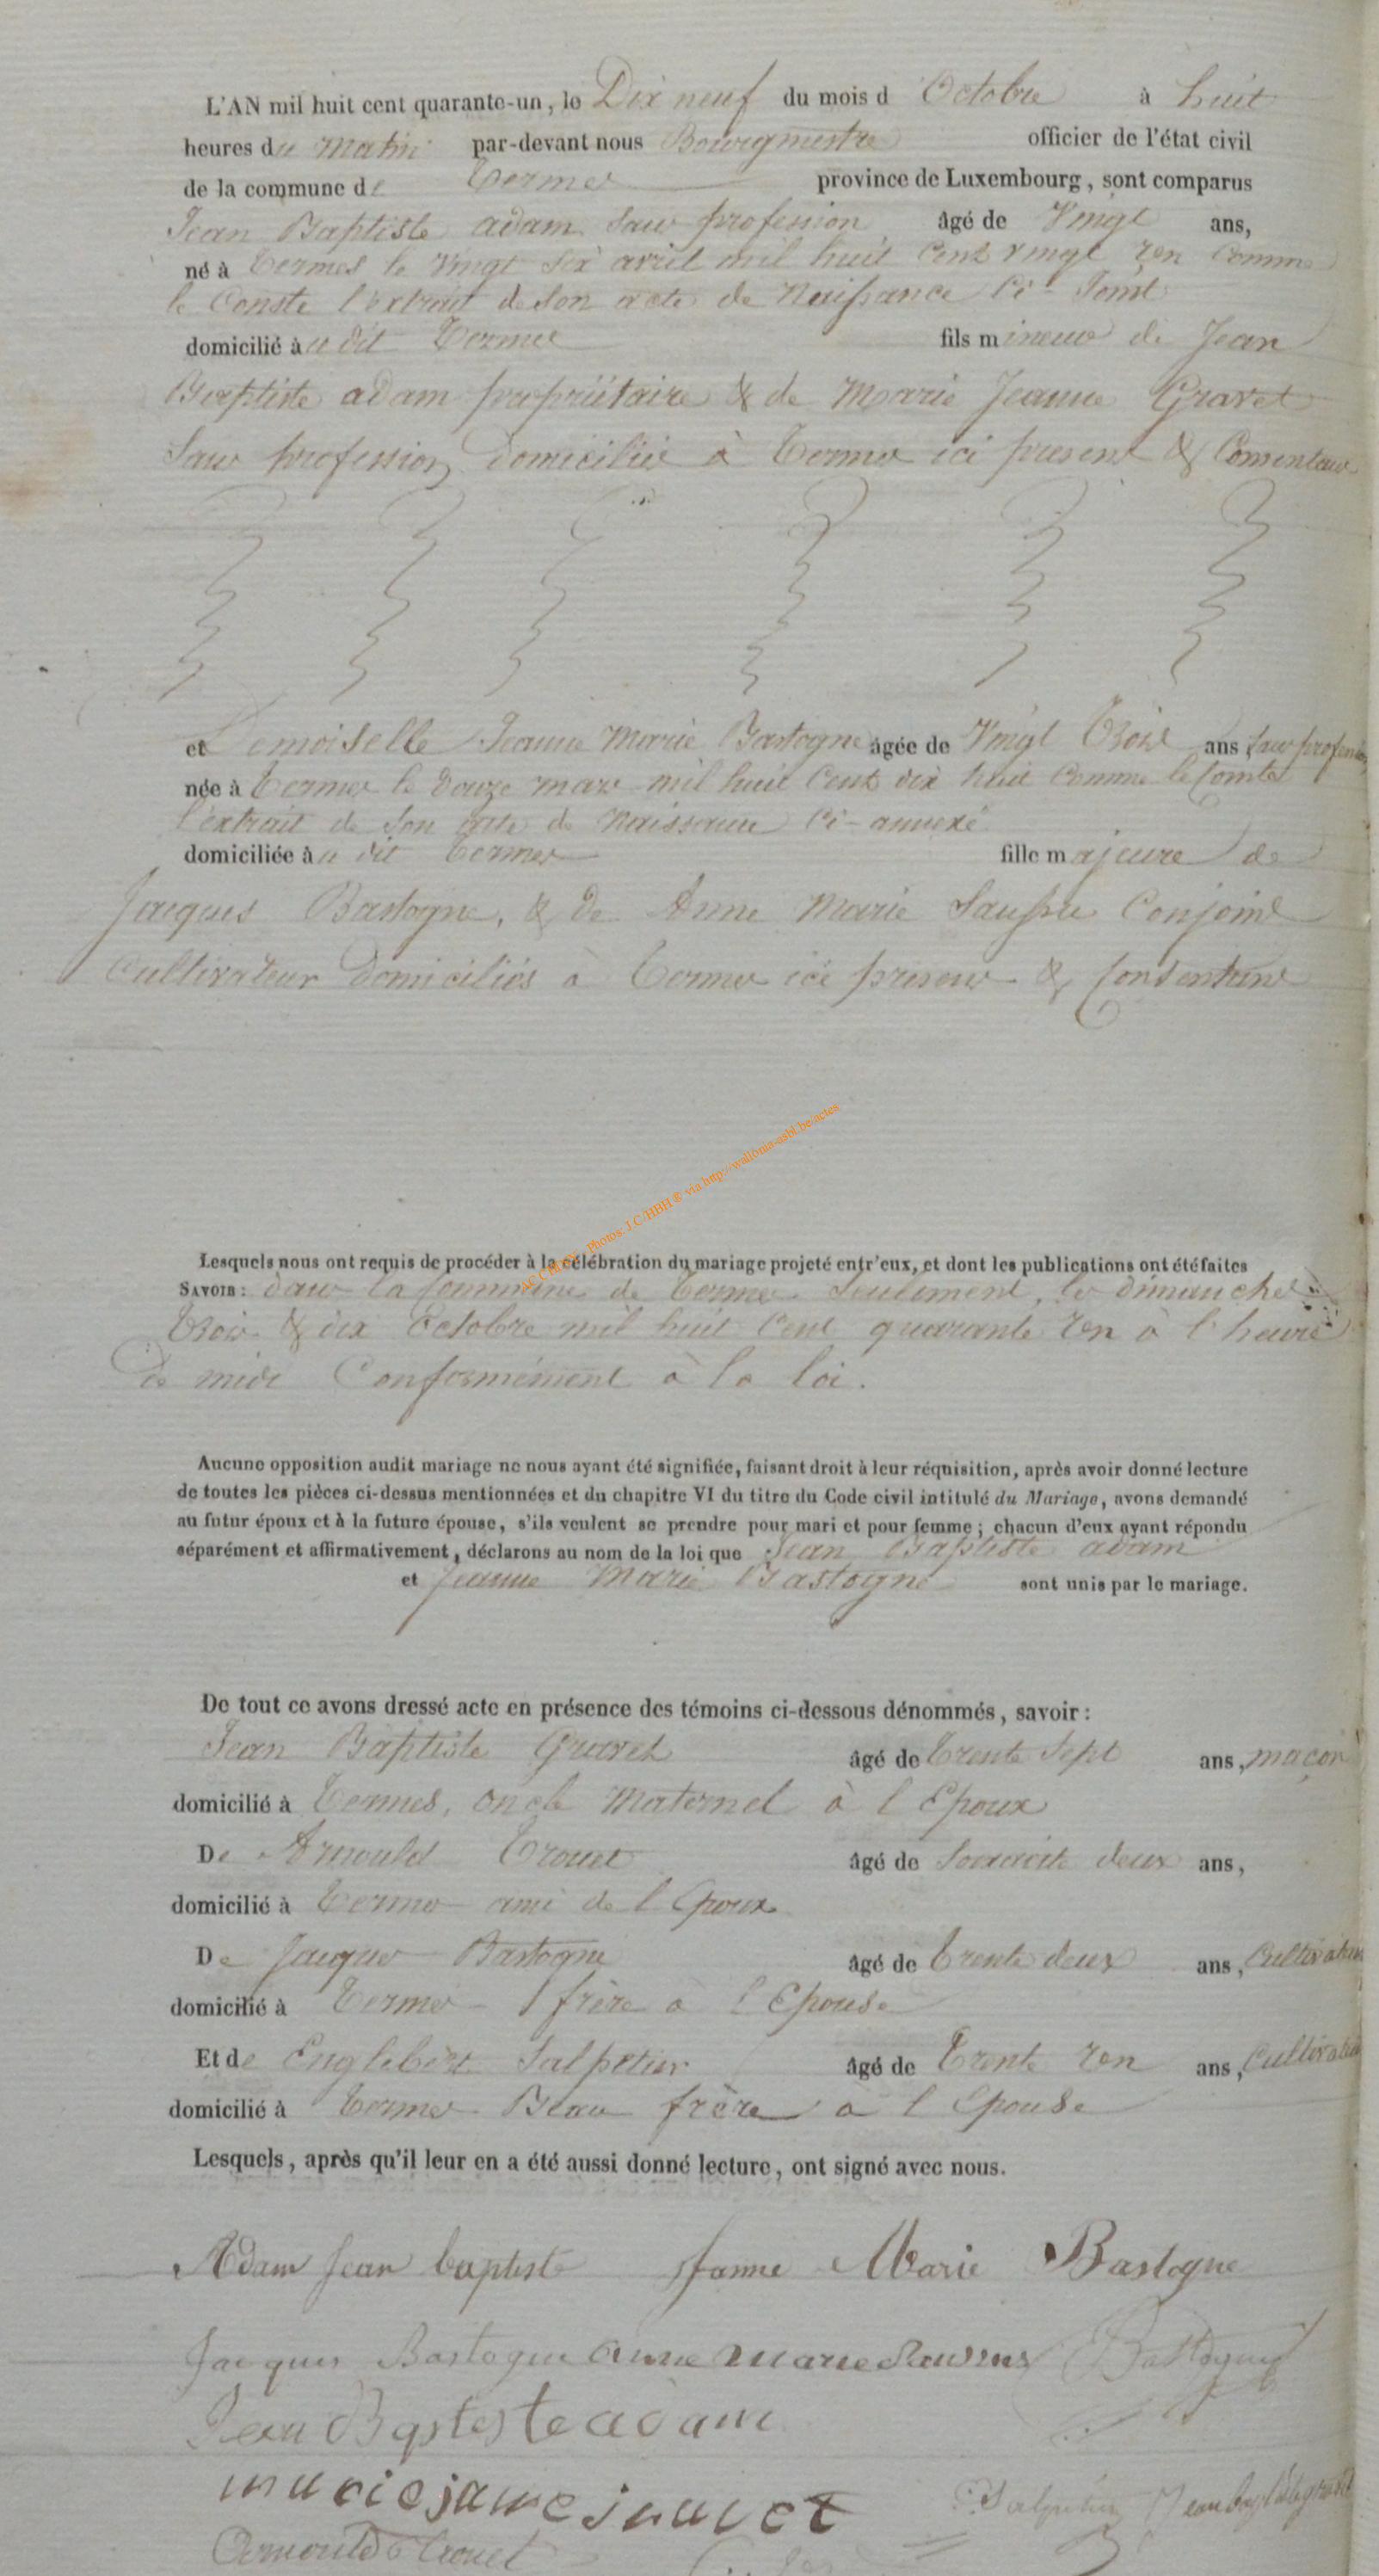 L'AN mil huit cent quarante-un, le Dix neuf du mois d Octobre à huit
heures du matin par-devant nous Bourgmestre officier de l'état civil
de la commune de Termes province de Luxembourg, sont comparus
Jean Baptiste adam sans profession âgé de Vingt ans,
né à Termes le Vingt six avril mil huit cent vingt un comme
le Conste l'extrait de son acte de Naissance Ci-Joint
domicilié à u dit Termes fils mineur de Jean
Baptiste adam propriétaire & de Marie Jeanne Gravet
Sans profession domiciliés à Termes ici present & Consentans
et Demoiselle Jeanne Marie Bastogne âgée de Vingt Trois ans, sans profession
née à Termes le Douze mars mil huit Cent dix huit Comme le Conste
l'extrait de son acte de Naissance Ci-annexé
domiciliée à u dit Termes fille majeure de
Jacques Bastogne, & de Anne Marie Conjoint
Cultivateur Domiciliés à Termes ici presens & Consentans
AC CHINY - Photos: J.C/HBH ® via http://wallonia-asbl.be/actes
Lesquels nous ont requis de procéder à la célébration du mariage projeté entr'eux, et dont les publications ont été faites
SAVOIR: dans la Commune de Termes Seulement, les dimanches
Trois & dix Octobre mil huit Cent quarante un à l'heure
de midi Conformément à la loi.
Aucune opposition audit mariage ne nous ayant été signifiée, faisant droit à leur réquisition, après avoir donné lecture
de toutes les pièces ci-dessus mentionnées et du chapitre VI du titre du Code civil intitulé du Mariage, avons demandé
au futur époux et à la future épouse, s'ils veulent se prendre pour mari et pour femme; chacun d'eux ayant répondu
séparément et affirmativement, déclarons au nom de la loi que Jean Baptiste adam
et Jeanne Marie Bastogne sont unis par le mariage.
De tout ce avons dressé acte en présence des témoins ci-dessous dénommés, savoir:
Jean Baptiste Gravet âgé de Trente Sept ans, maçon
domicilié à Termes, oncle Maternel à l Epoux
De Arnould Trouet âgé de Soixante deux ans,
domicilié à Termes ami de l Epoux
De Jacques Bastogne âgé de Trente deux ans, Cultivateur
domicilié à Termes frère à l Epouse
Et de Englebert Salpetier âgé de Trente un ans, Cultivateur
domicilié à Termes Beau frère à l Epouse
Lesquels, après qu'il leur en a été aussi donné lecture, ont signé avec nous.
Adam Jean baptiste Janne Marie Bastogne
Jacques Bastogne anne marie Bastogne
Jean Baptiste adam
marie jane
Arnould Trouet